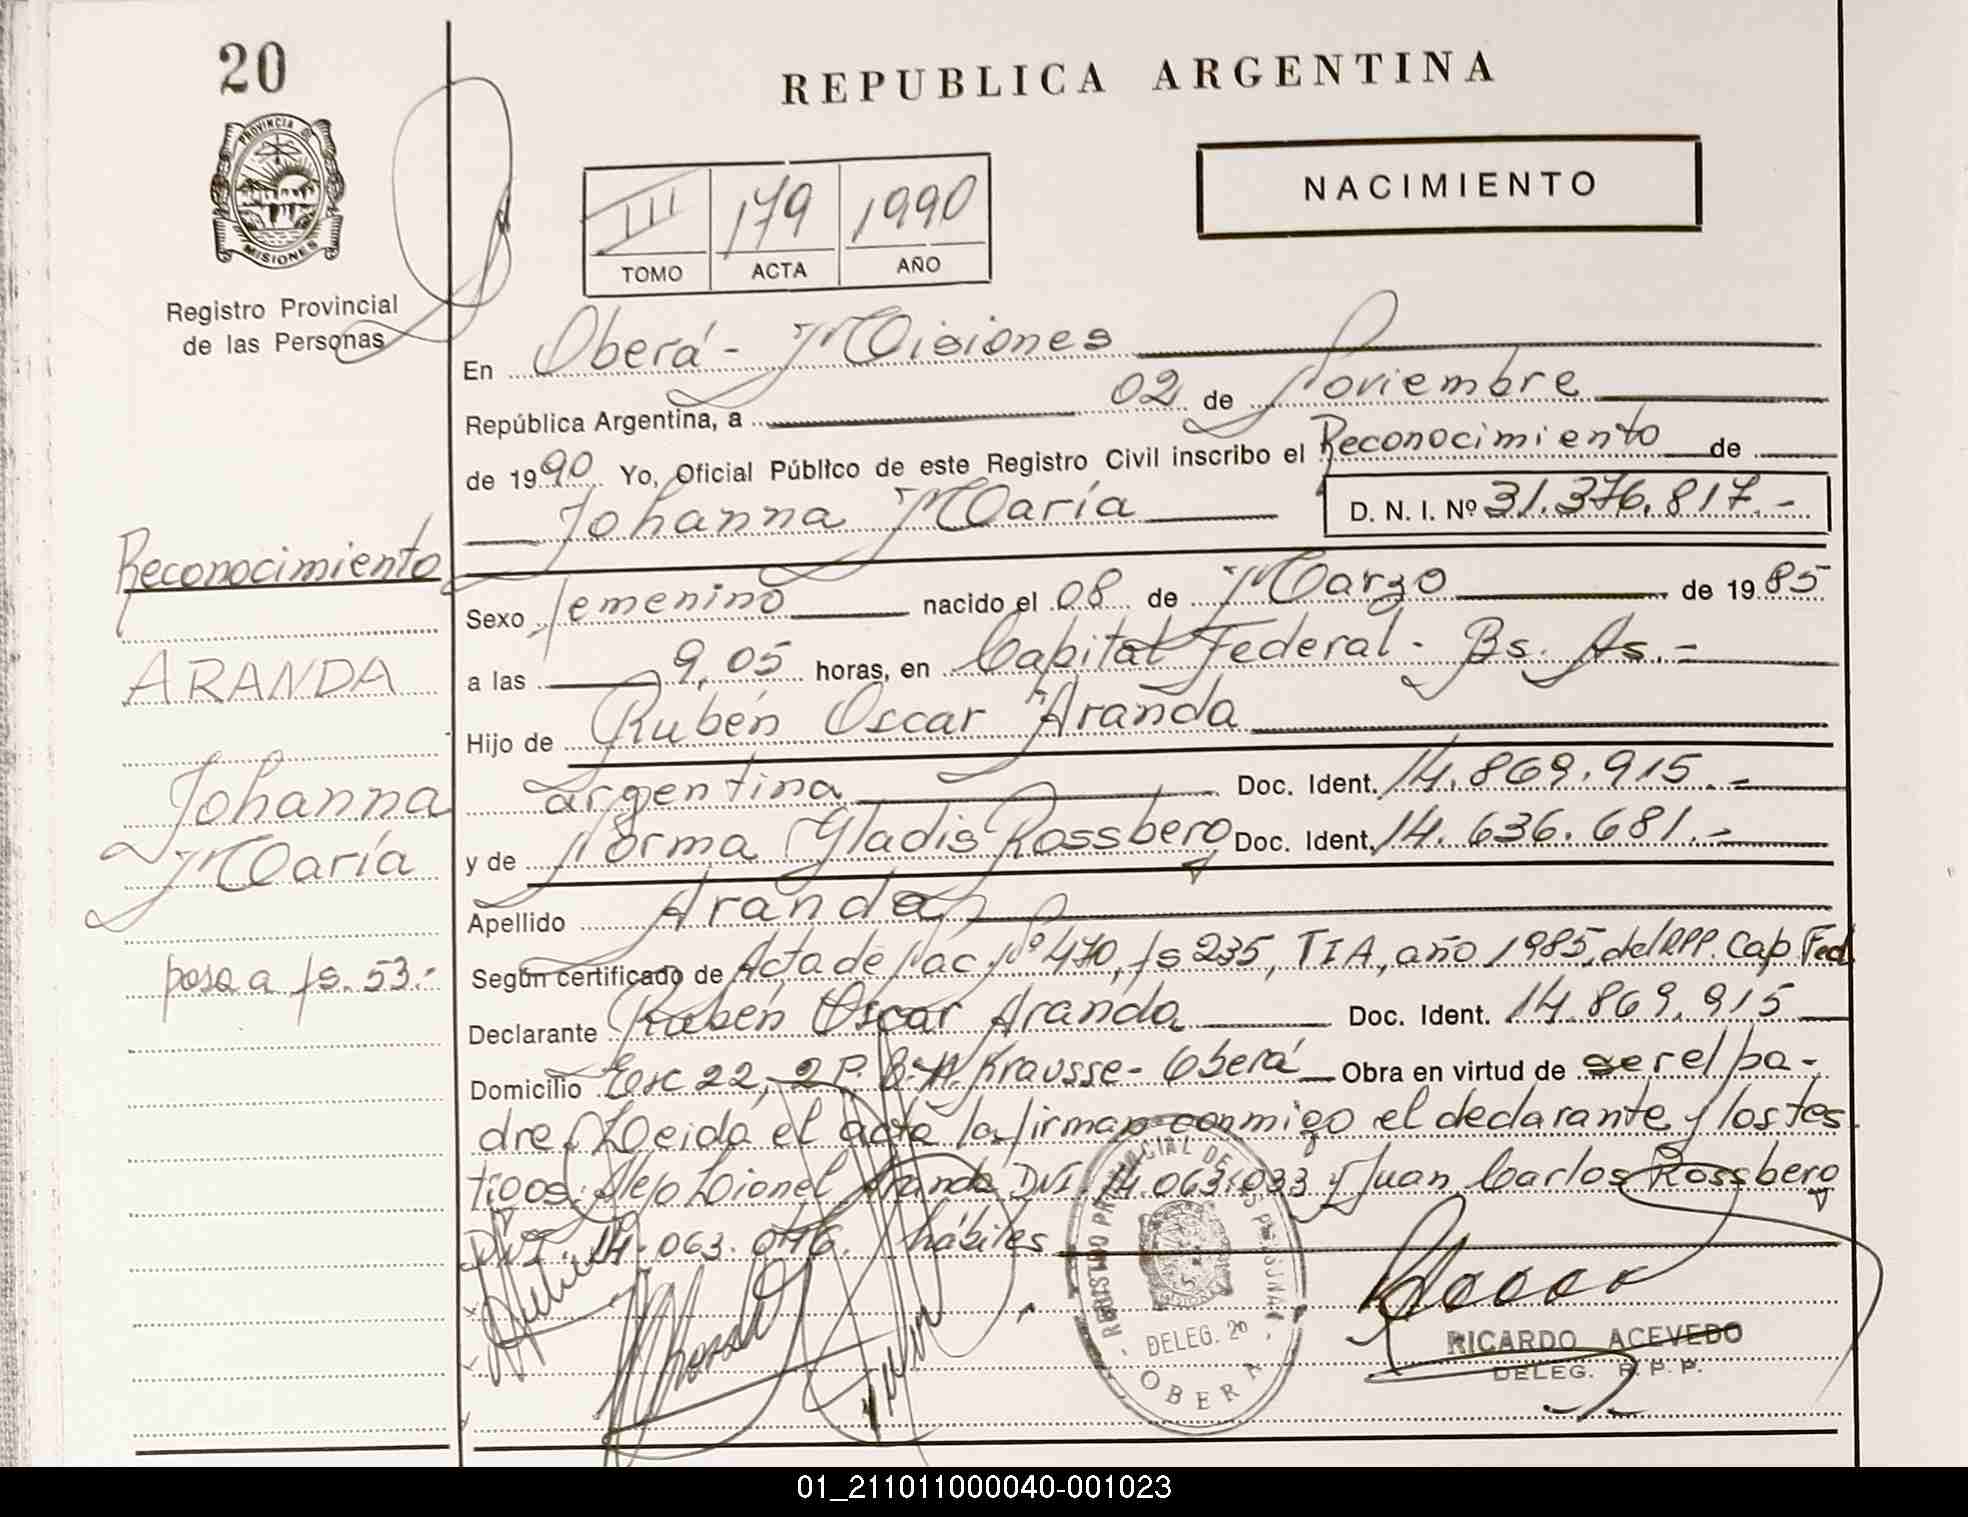 20
REPUBLICA ARGENTINA
PROVINCIA
MISIONES
Registro Provincial
de las Personas
III 179 1990
TOMO ACTA AÑO
NACIMIENTO
En Oberá - Misiones
República Argentina, a 02 de Noviembre
de 1990 Yo, Oficial Público de este Registro Civil inscribo el Reconocimiento de
Johanna María D. N. I. Nº 31.376.817.-
Sexo femenino nacido el 08 de Marzo de 1985
a las 9,05 horas, en Capital Federal - Bs. As.-
Hijo de Rubén Oscar Aranda
argentina Doc. Ident. 14.869.915.-
y de Norma Gladis Rossberg Doc. Ident. 14.636.681.-
Apellido Aranda
Según certificado de Acta de Nac Nº 470, fs 235, T I A, año 1985, del RPP. Cap Fed.
Declarante Rubén Oscar Aranda Doc. Ident. 14.869.915
Domicilio Esc 22, 2 P. B-A. Krausse - Oberá Obra en virtud de ser el pa-
dre. Leida el acta la firman conmigo el declarante y los tes
tigos: Alejo Lionel Aranda DNI. 14.063.033 y Juan Carlos Rossberg
DNI. 14.063.046. hábiles
Reconocimiento
ARANDA
Johanna
María
pasa a fs. 53.-
REGISTRO PROVINCIAL DE LAS PERSONAS
DELEG. 20
OBERA
RICARDO ACEVEDO
DELEG. R. P. P.
01_211011000040-001023